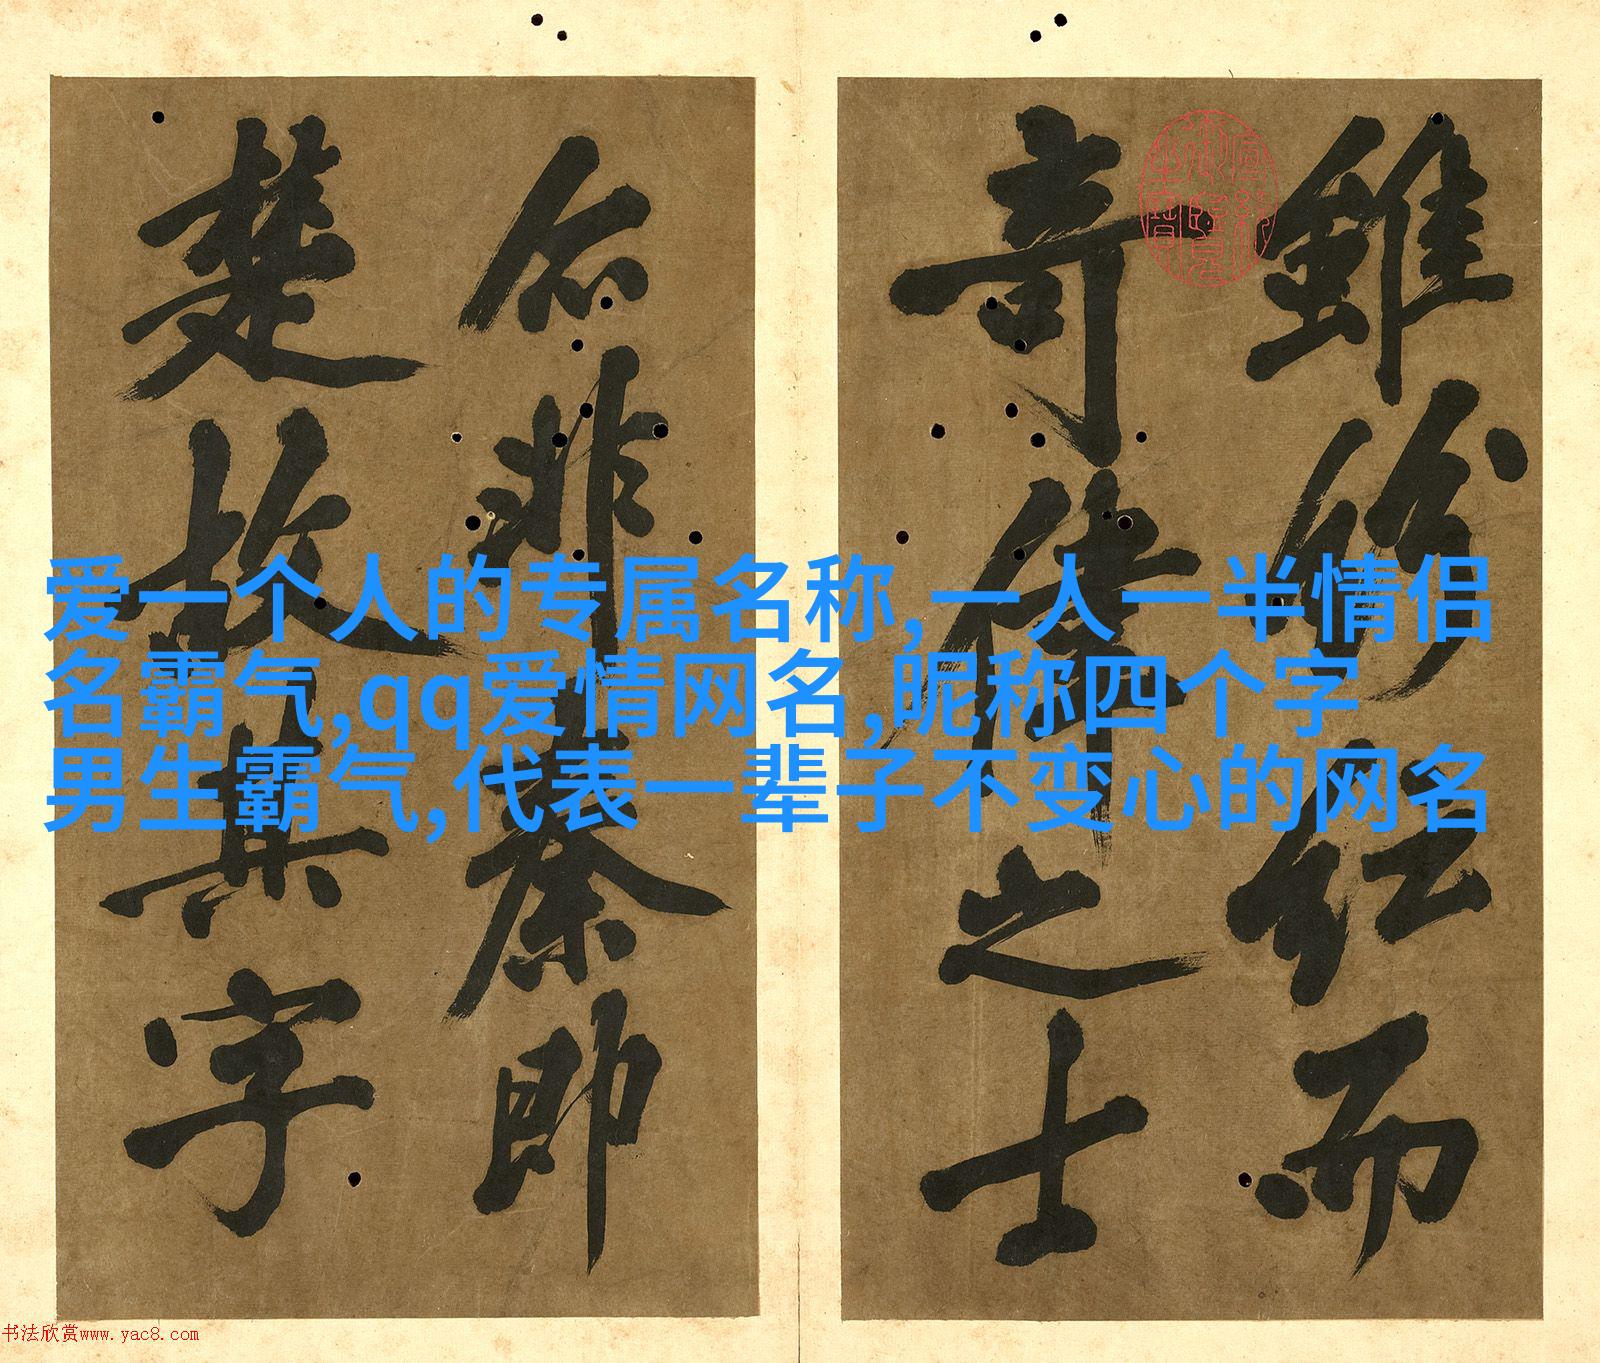 爱一个人的专属名称,一人一半情侣
名霸气,qq爱情网名,昵称四个字
男生霸气,代表一辈子不变心的网名
雖紛紜而
奇偉之士
非秦即
楚故其字
书法欣赏www.yac8.com